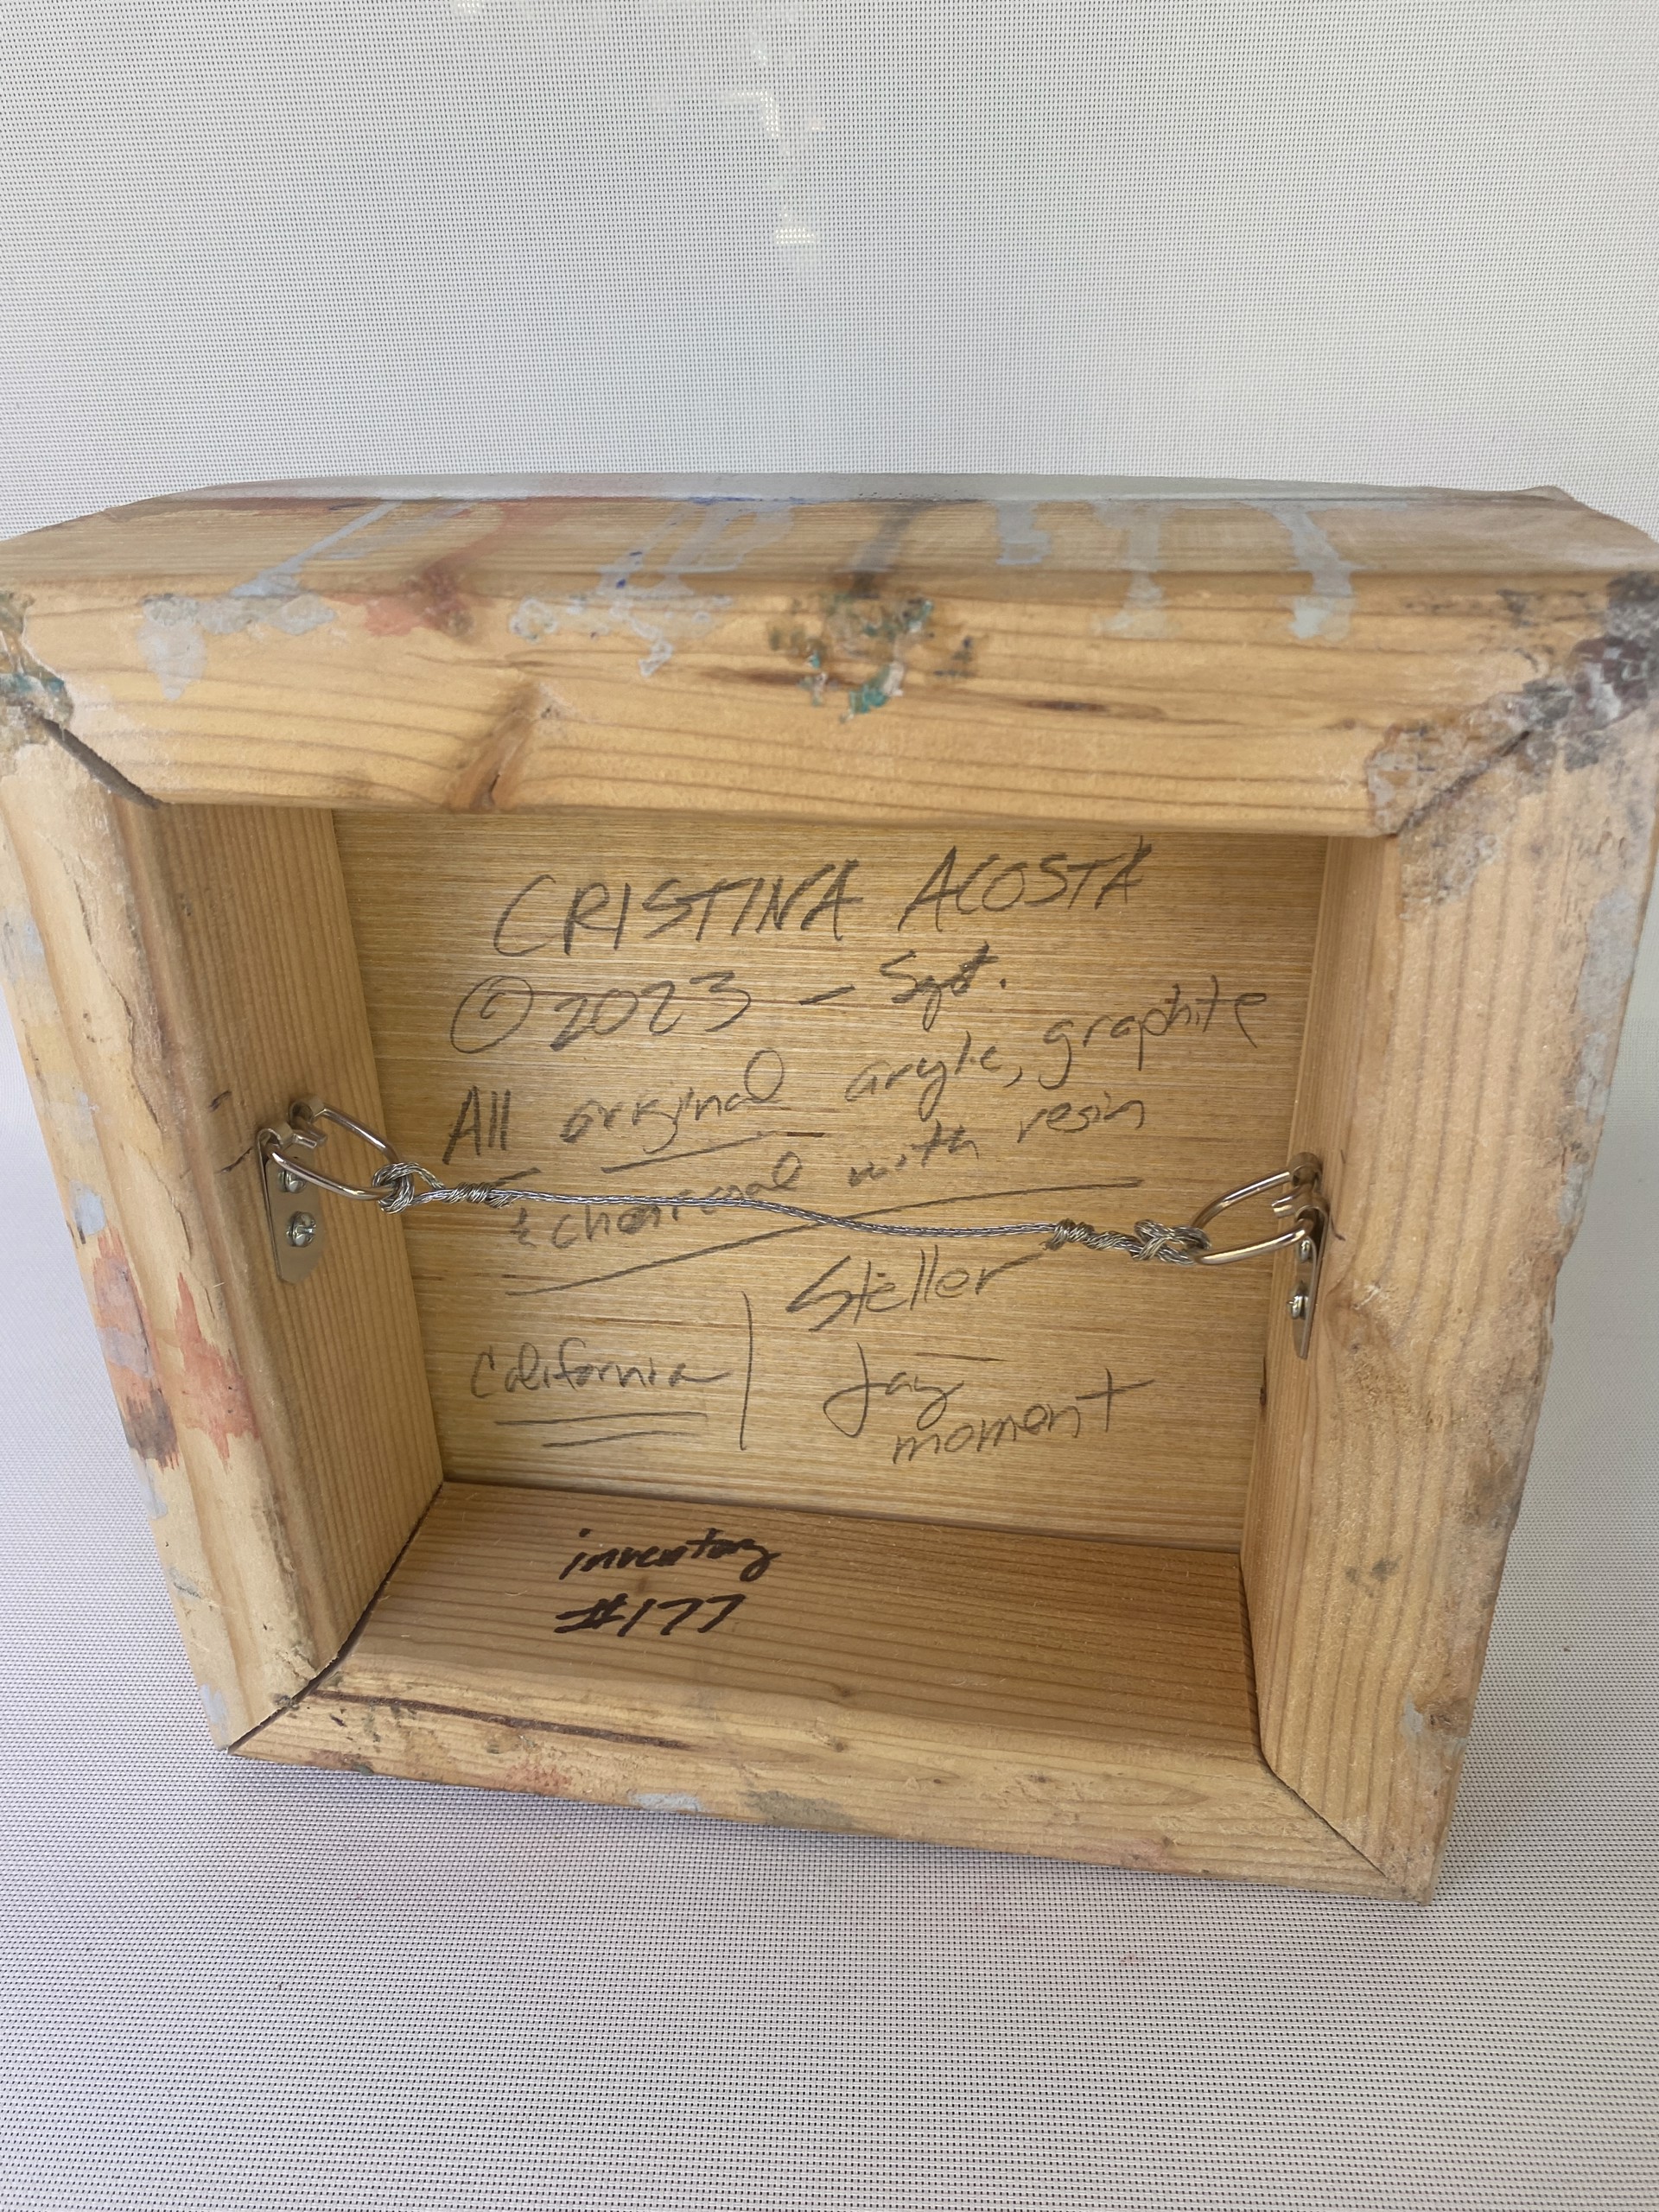 CRISTINA ACOSTA
© 2023 - Sept.
All original acrylic, graphite
& charcoal with resin
California
Steller
Jay
moment
inventory
#177